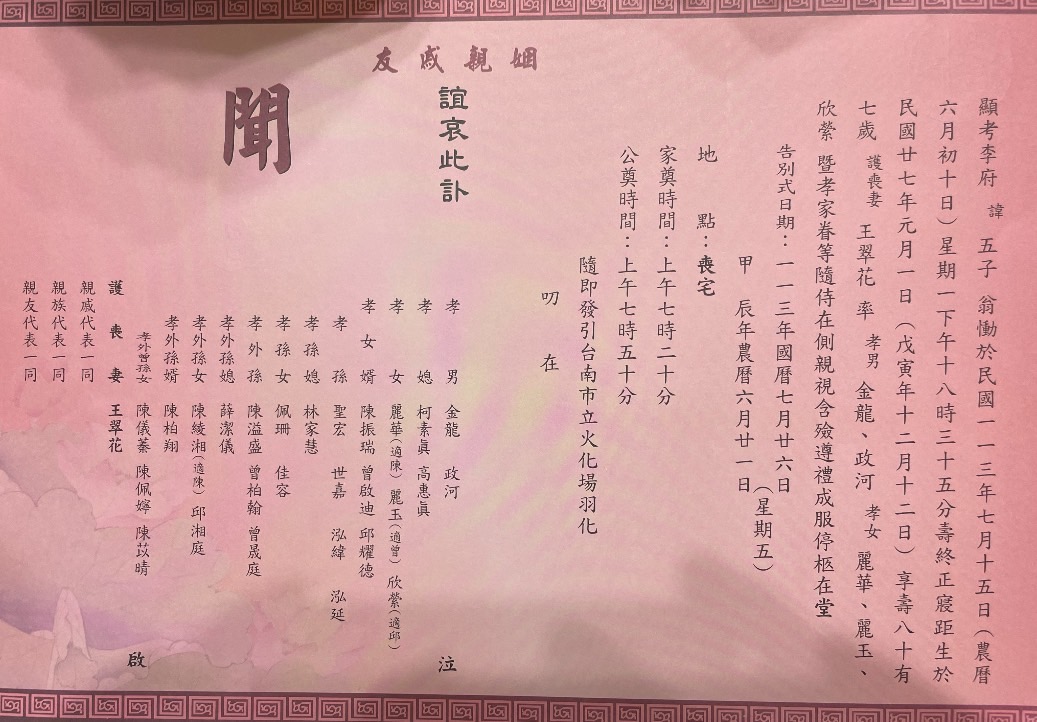 顯考李府 諱 五子 翁慟於民國一一三年七月十五日(農曆
六月初十日)星期一下午十八時三十五分壽終正寢距生於
民國廿七年元月一日(戊寅年十二月十二日)享壽八十有
七歲 護喪妻 王翠花 率 孝男 金龍、政河 孝女 麗華、麗玉、
欣縈 暨孝家眷等隨侍在側親視含殮遵禮成服停柩在堂
告別式日期:一一三年國曆七月廿六日
甲 辰年農曆六月廿一日
(星期五)
地 點:喪宅
家奠時間:上午七時二十分
公奠時間:上午七時五十分
隨即發引台南市立火化場羽化
叨 在
姻親戚友
誼哀此訃
聞
孝 男 金龍 政河 泣
孝 媳 柯素真 高惠真
孝 女 麗華(適陳) 麗玉(適曾) 欣縈(適邱)
孝 女 婿 陳振瑞 曾啟迪 邱耀德
孝 孫 聖宏 世嘉 泓緯 泓延
孝 孫 媳 林家慧
孝 孫 女 佩珊 佳容
孝 外 孫 陳溢盛 曾柏翰 曾晟庭
孝外孫媳 薛潔儀
孝外孫女 陳綾湘(適陳) 邱湘庭
孝外孫婿 陳柏翔
孝外曾孫女 陳儀蓁 陳佩嬣 陳苡晴 啟
護 喪 妻 王翠花
親戚代表一同
親族代表一同
親友代表一同